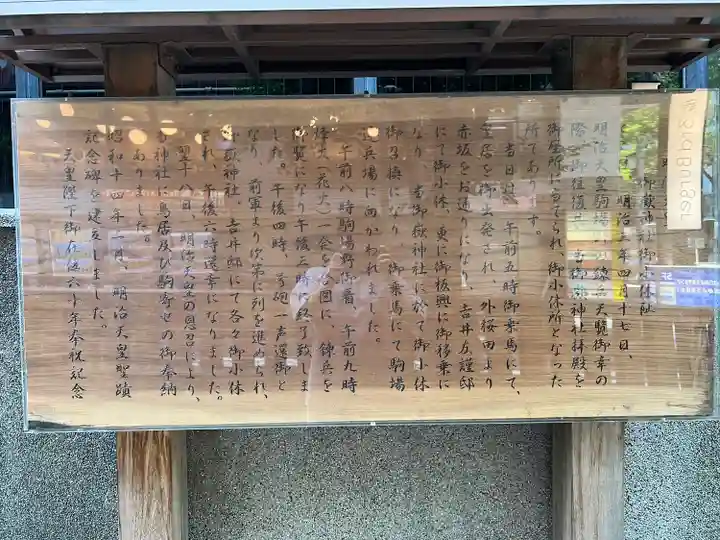 御嶽神社御小休趾
明治三年四月十七日、
明治天皇駒場 練兵天覧御幸の
際 御往復共 当御嶽神社拝殿を
御座所に当てられ 御小休所となった
所であります。
当日は、午前五時御乗馬にて、
皇居を御出発され、外桜田より
赤坂をお通りになり、吉井友謹邸
にて御小休、更に御板輿に御移乗に
なり 当御嶽神社に於て御小休
御召換になり、御乗馬にて駒場
練兵場に向かわれました。
午前八時駒場野御着、午前九時
烽火(花火)一会を合図に、錬兵を
御覧になり午後三時に終了致しま
した。午後四時、号砲一声還御と
なり、前軍より次第に列を進められ、
御嶽神社、吉井邸にて各々御小休
され、午後六時還幸になりました。
翌十八日、明治天皇の恩召により、
当神社に鳥居及び駒寄せの御奉納
ありました。
昭和十四年一月、明治天皇聖蹟
記念碑を建立しました。
天皇陛下御在位六十年奉祝記念